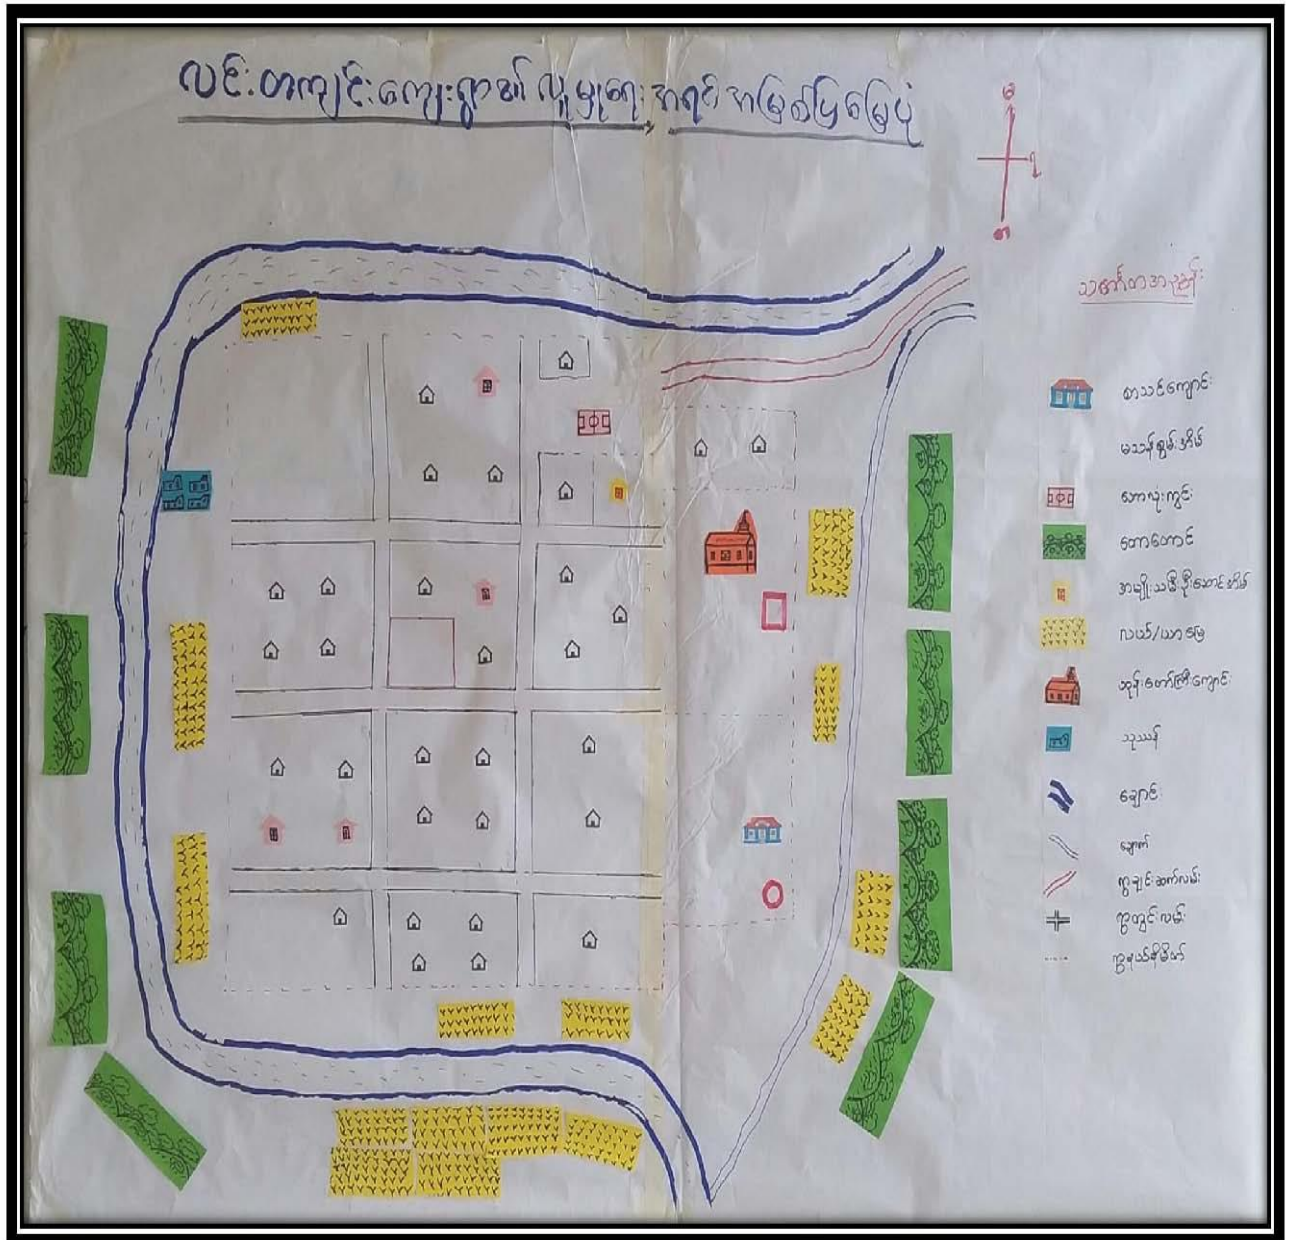 လင်းတကျင်းကျေးရွာ၏ လူမှုရေး အရင်းအမြစ်ပြမြေပုံ
မ
ရ
တ
သင်္ကေတအညွှန်း
စာသင်ကျောင်း
မသန်စွမ်းအိမ်
ဘောလုံးကွင်း
တောတောင်
အမျိုးသမီးဦးဆောင်အိမ်
လယ်/ယာမြေ
ဘုန်းတော်ကြီးကျောင်း
သုသာန်
ချောင်း
ချောက်
ရွာချင်းဆက်လမ်း
ရွာတွင်းလမ်း
ရွာနယ်နိမိတ်